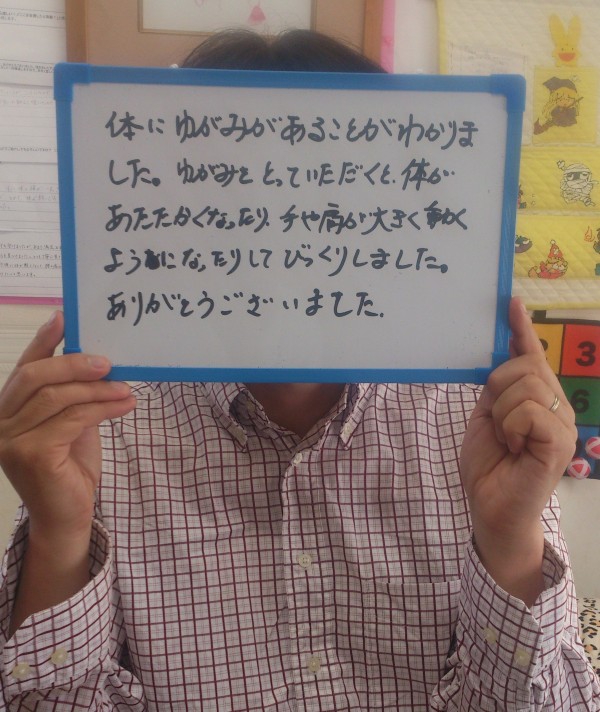 体にゆがみがあることがわかりま
した。ゆがみをとっていただくと、体が
あたたかくなったり、手や肩が大きく動く
ようになったりしてびっくりしました。
ありがとうございました.
3
6